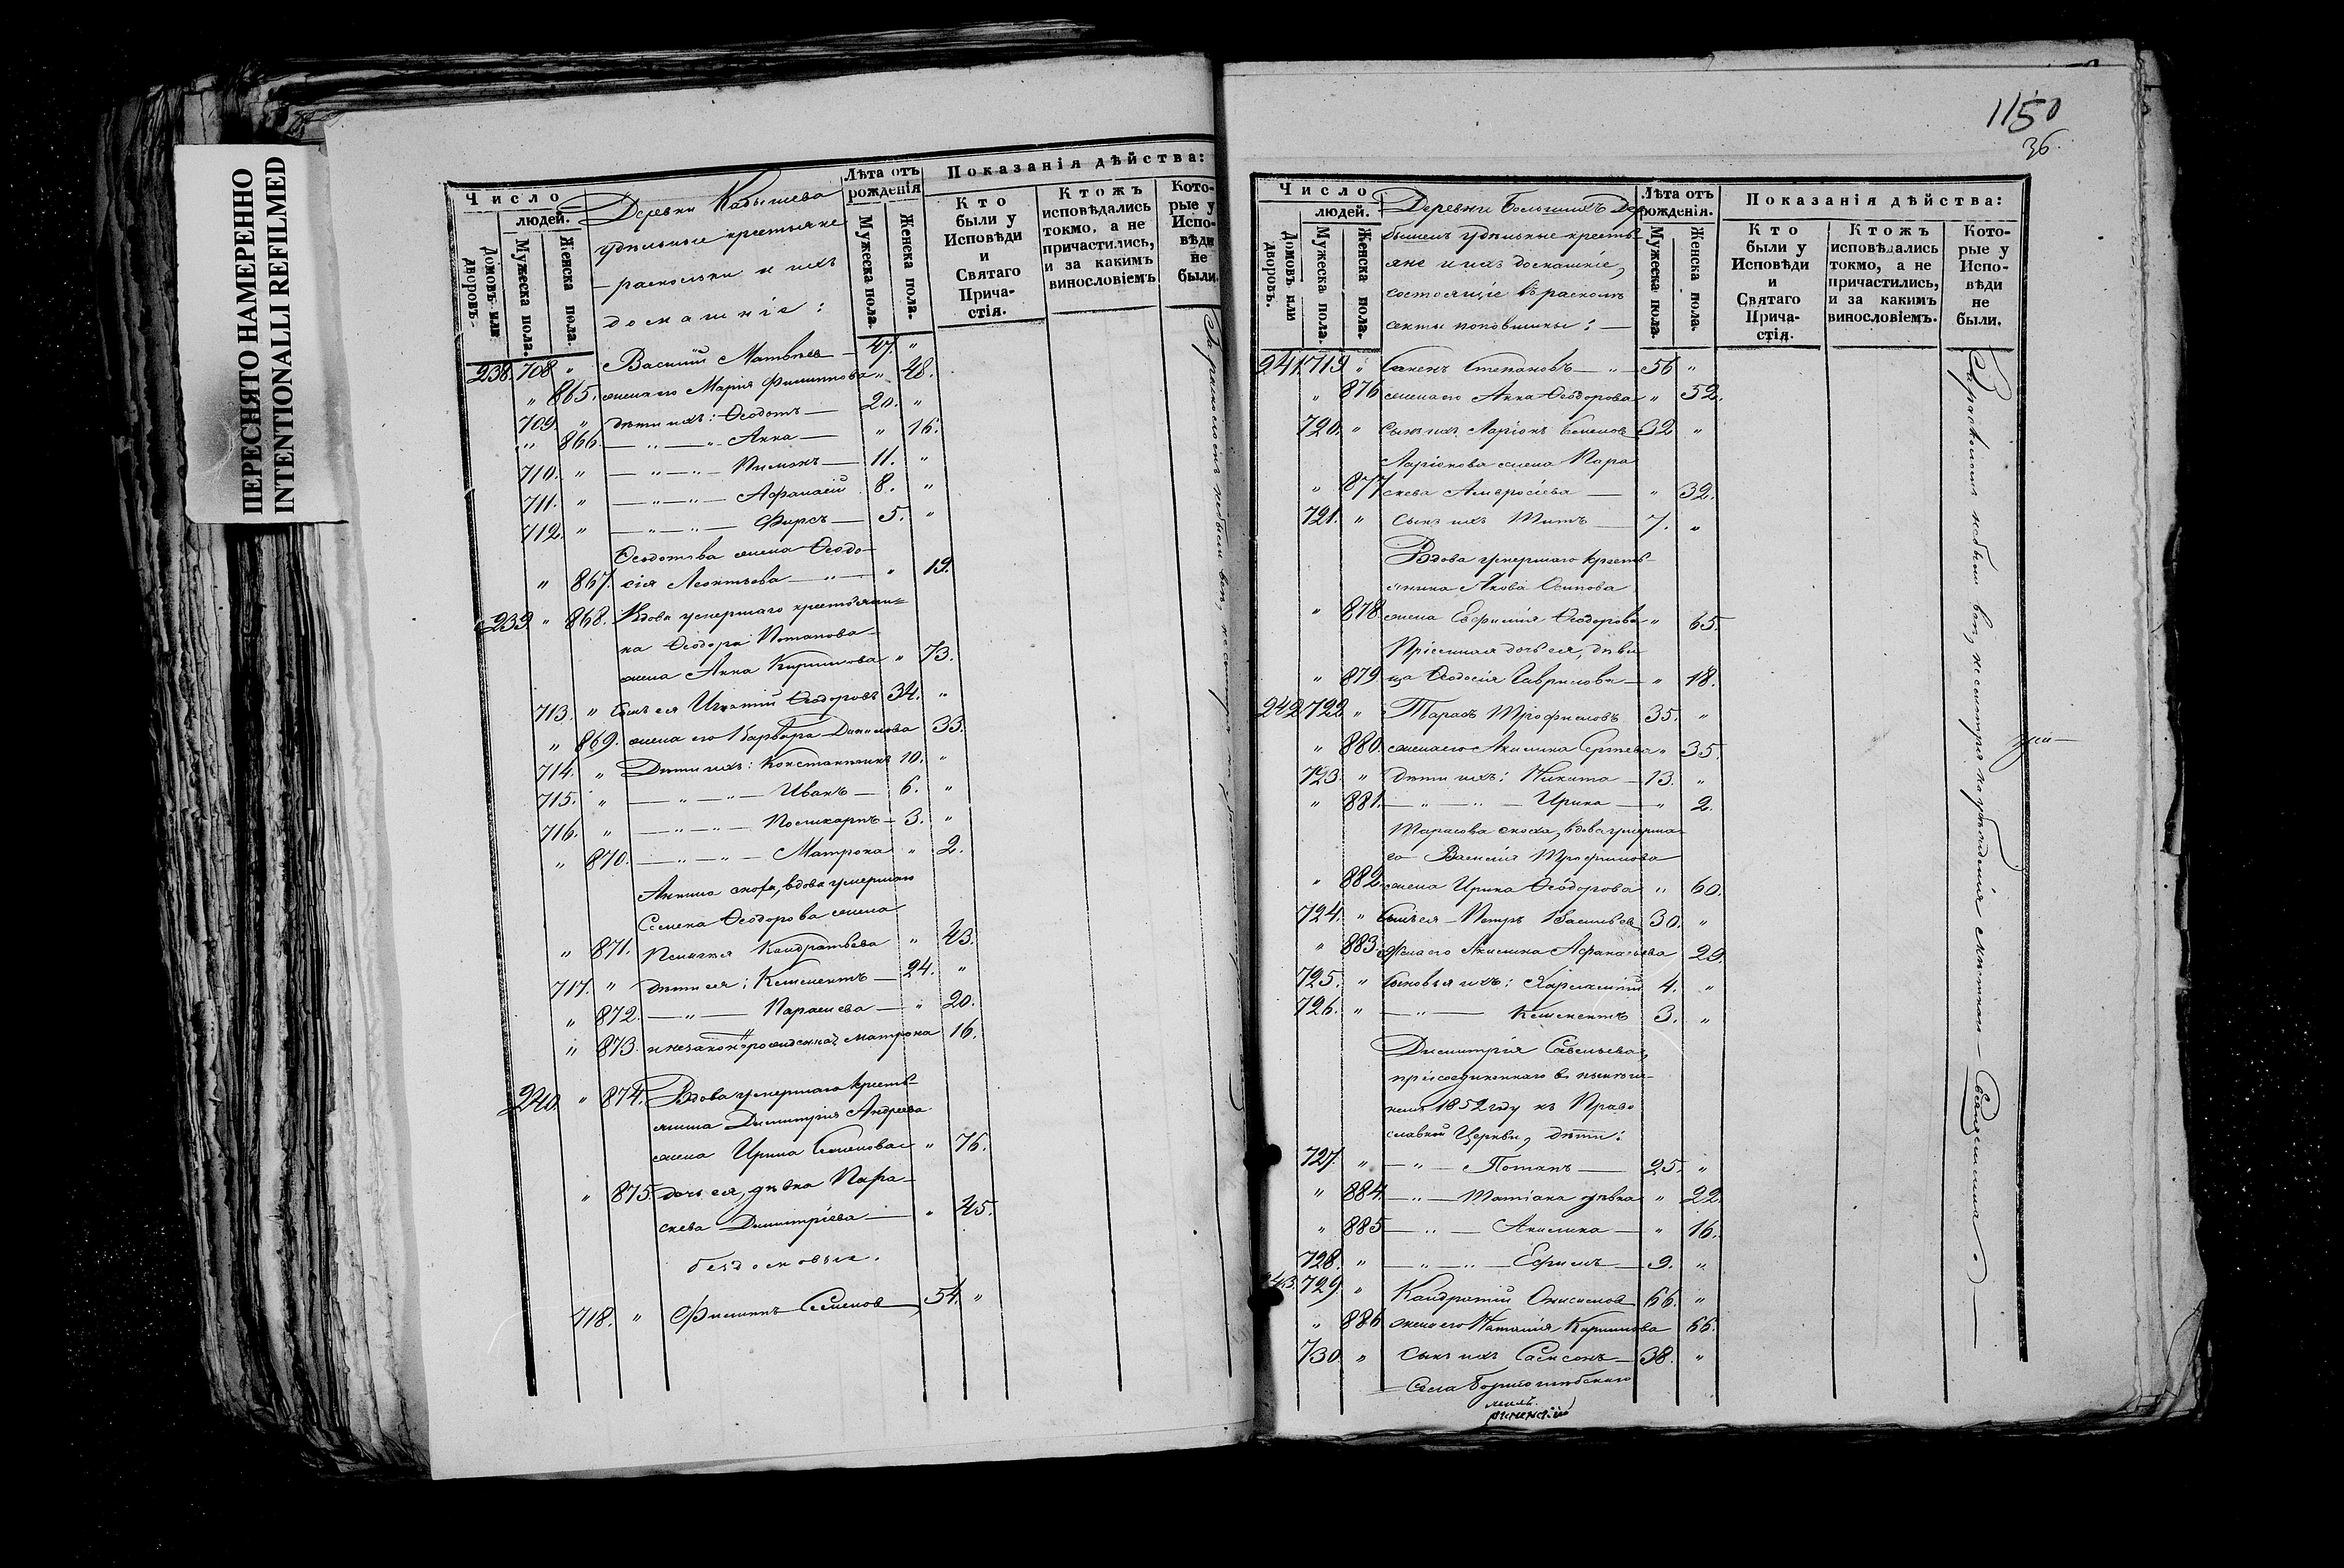 ПЕРЕСНЯТО НАМЕРЕННО
INTENTIONALLI REFILMED
Число
людей.
Домовъ или дворовъ.
Мужеска пола.
Женска пола.
Деревни Кабышева
удѣльные крестьяне
раскольники и ихъ
домашніе:
Лѣта отъ рожденія
Мужеска пола.
Женска пола.
Показанія дѣйства:
Кто были у Исповѣди и Святаго Прича- стія.
Ктожъ исповѣдались токмо, а не причастились, и за какимъ винословіемъ
Кото- рые у Испо- вѣди не были.
238. 708 " Василій Матвѣевъ 47. "
" 865. жена его Марія Филиппова " 48.
709 " дѣти ихъ: Ѳеодотъ 20. "
" 866. — " — " — Анна — " 16.
710. " — " — " — Пименъ — 11. "
711. " — " — " — Афанасій 8. "
712. " — " — " — Фирсъ — 5. "
Ѳеодотова жена Ѳеодо-
" 867. сія Леонтьева — " — " 19.
239 " 868. Вдова умершаго крестьяни-
на Ѳеодора Потапова
жена Анна Кирилова " 73.
713. " сынъ ея Игнатій Ѳеодоровъ 34. "
" 869. жена его Варвара Данилова 33.
714. " Дѣти ихъ: Константинъ 10. "
715. " — " — " — Иванъ — 6. "
716. " — " — " — Поликарпъ — 3. "
" 870. — " — " — Матрона " 2.
сноха, вдова умершаго
Семена Ѳеодорова жена
" 871. Кондратьева " 43.
717. " дѣти ея: Климентъ — 24. "
" 872. — " — Параскева — " 20.
" 873. и незаконнорожденная Матрона 16.
240 " 874. Вдова умершаго кресть-
янина Димитрія Андреева
жена Ирина Семенова " 76.
" 875. дочь ея, дѣвка Пара-
скева Димитріева — " 45.
бездомовые.
718. " Филиппъ Семенов 54. "
За расколомъ не были вси, не смотря на
1150
36.
Число
людей.
Домовъ или дворовъ.
Мужеска пола.
Женска пола.
Деревни Большихъ Дер
бышекъ удѣльные кресть-
яне и ихъ домашніе,
состоящіе въ расколѣ
секты поповщины: —
Лѣта отъ рожденія.
Мужеска пола.
Женска пола.
Показанія дѣйства:
Кто были у Исповѣди и Святаго Прича- стія.
Ктожъ исповѣдались токмо, а не причастились, и за какимъ винословіемъ.
Кото- рые у Испо- вѣди не были.
241 719 " Семенъ Степановъ — " — 56 "
" 876 жена его Анна Ѳеодорова " 52.
720. " Сынъ ихъ Ларіонъ Семенов 32 "
Ларіонова жена Пара
" 877 скева Амвросіева — " 32.
721. " Сынъ ихъ Титъ — 7. "
Вдова умершаго кресть-
янина Якова Осипова
" 878 жена Евфимія Ѳеодорова " 65.
Пріемная дочь ея, дѣви
" 879 ца Ѳеодосія Гаврилова — " 18.
242 722 " Тарасъ Трофимовъ 35. "
" 880. жена его Акилина Сергѣева " 35.
723. " Дѣти ихъ: Никита — 13. "
" 881. — " — " — Ирина — " 2.
Тарасова сноха, вдова умерша-
го Василія Трофимова
" 882 жена Ирина Ѳеодорова " 60.
724. " Сынъ ея Петръ Васильев 30. "
" 883 жена его Акилина Афанасьева 29.
725. " Сыновья ихъ: Харлампій 4. "
726. " — " — Климентъ 3. "
Димитрія Савельева,
присоединеннаго въ нынѣш-
немъ 1852 году къ Право
славной Церкви, дѣти:
727. " — " — Потапъ — 25. "
" 884. — " — Татіана дѣвка " 22.
" 885 — " — Акилина — " 16.
728. " — " — " — Ефимъ — 9. "
243. 729 " Кондратій Онисимов 66. "
" 886 жена его Наталія Карпилова 66.
730. " Сынъ ихъ Самсонъ — 38. "
Села Борисоглѣбскаго
За расколомъ не были вси, не смотря на убѣжденія мѣстнаго Священника.